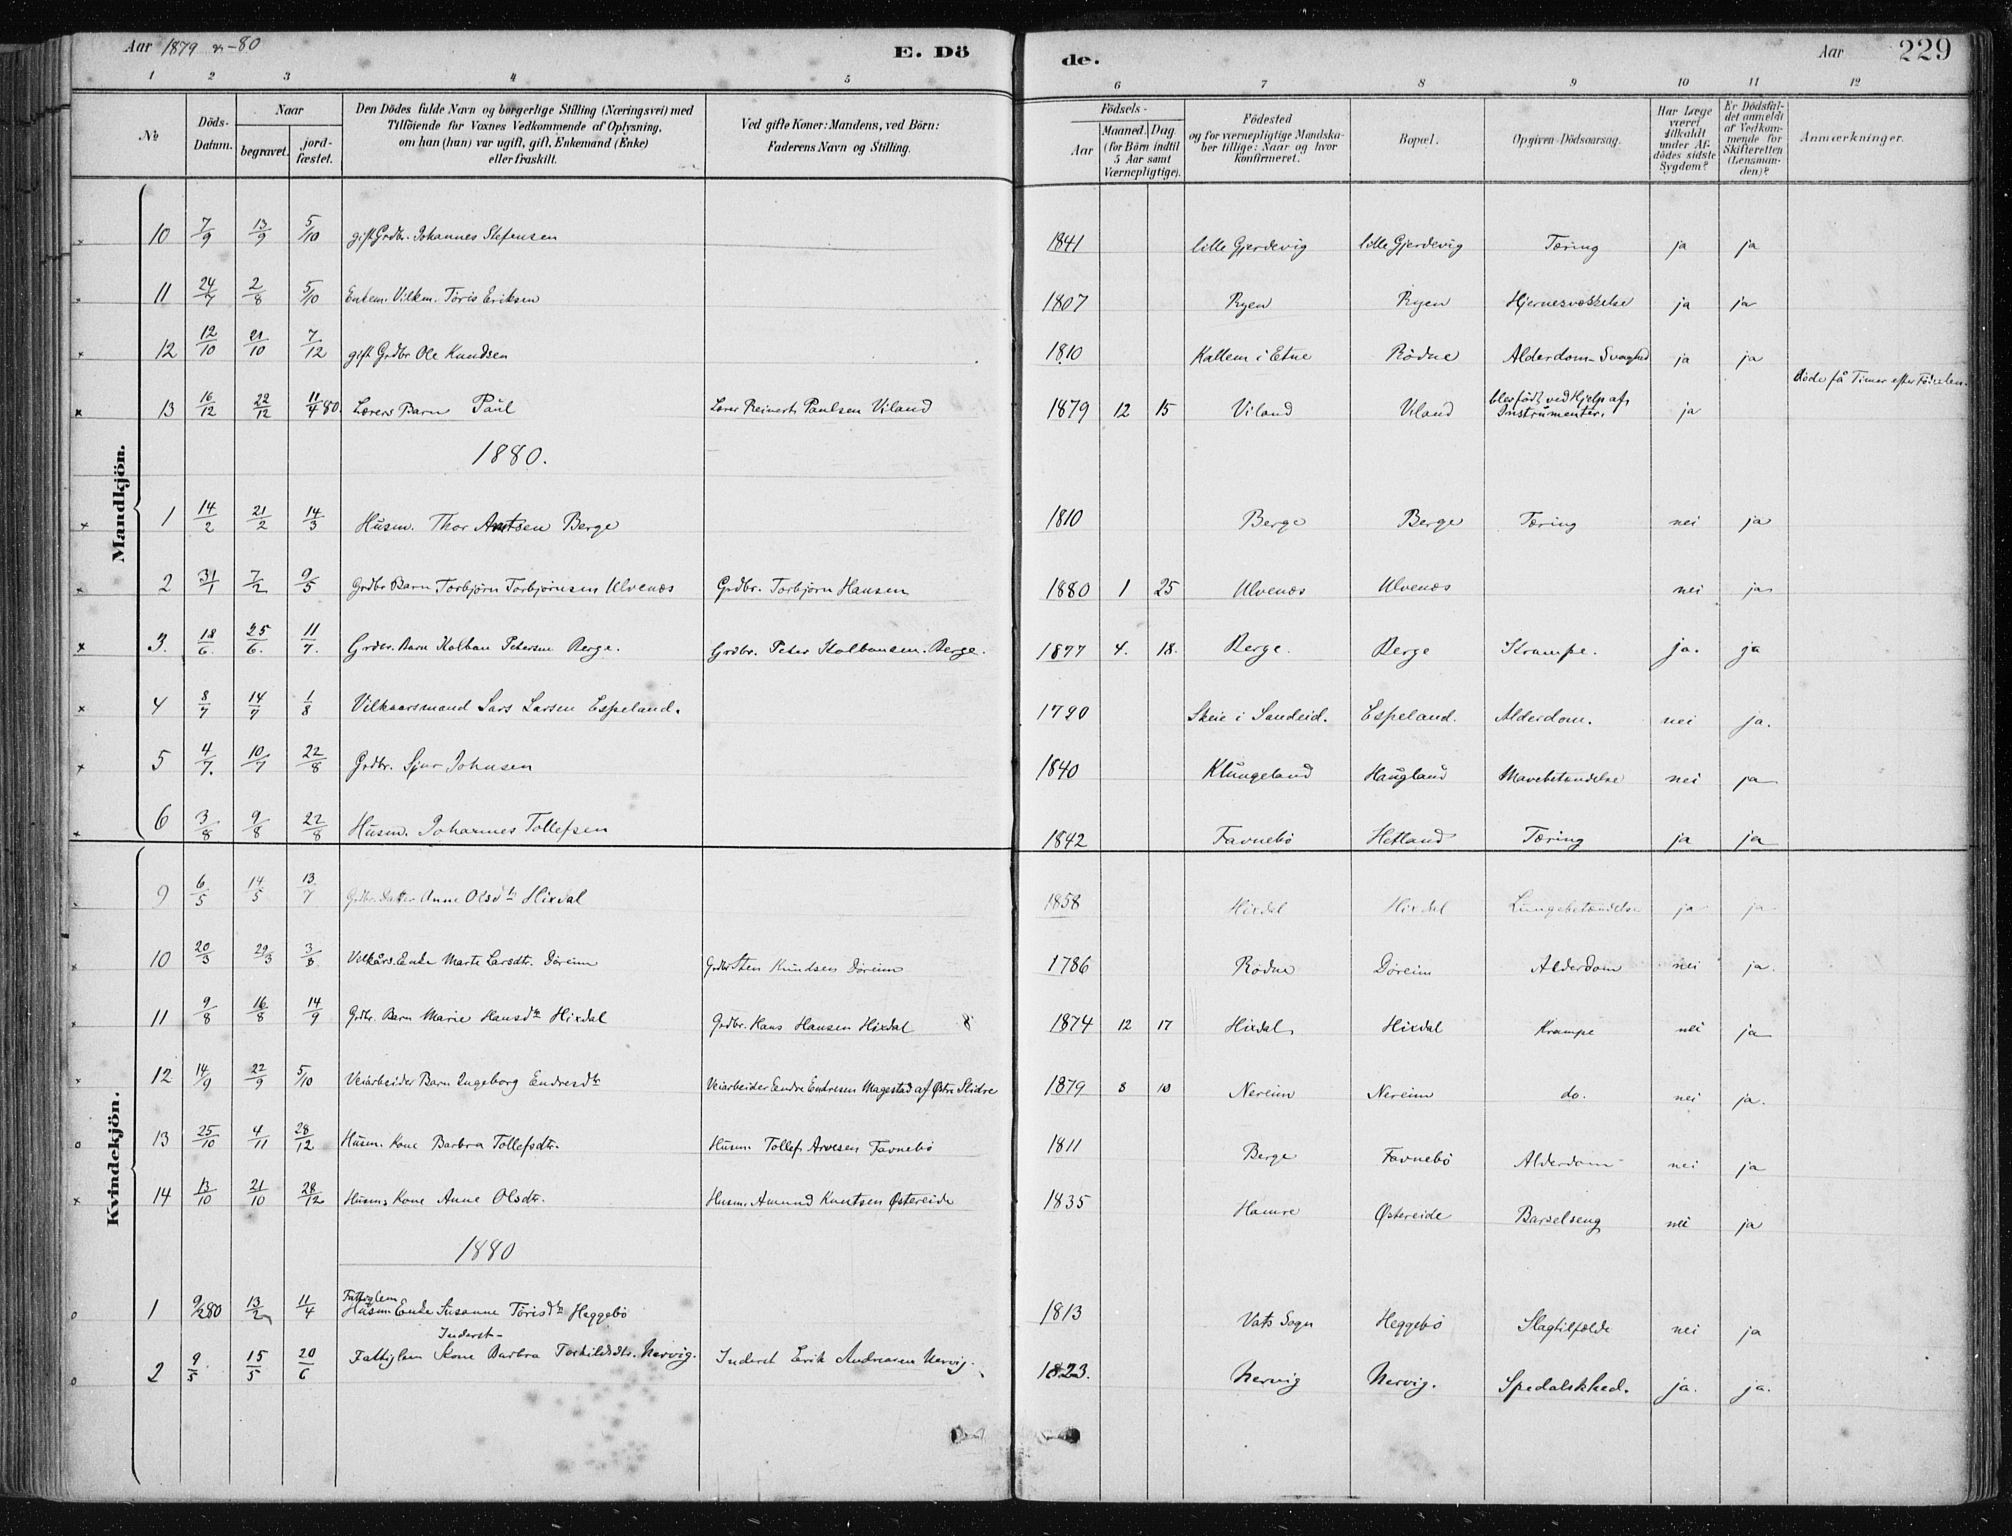 Aar 1879 n-80
E. Dö
de.
Aar
229
1 2 3 4 5 6 7 8 9 10 11 12
№
Döds-Datum.
Naar
begravet.
jordfæstet.
Den Dödes fulde Navn og borgerlige Stilling (Næringsvei) med
Tilföiende for Voxnes Vedkommende af Oplysning,
om han (hun) var ugift, gift, Enkemand (Enke)
eller fraskilt.
Ved gifte Koner: Mandens, ved Börn:
Faderens Navn og Stilling.
Födsels-
Aar
Maaned. Dag
(for Börn indtil
5 Aar samt
Værnepligtige).
Födested
og for værnepligtige Mandskaber tillige: Naar og hvor
konfirmeret.
Bopæl.
Opgiven Dödsaarsag.
Har Læge været tilkaldt under Afdödes sidste Sygdom?
Er Dödsfaldet anmeldt af Vedkommende for Skifteretten (Lensmanden)?
Anmærkninger.
Mandkjön.
10 7/9 13/9 5/10 gift Grdbr. Johannes Stefensen 1841 lille Gjerdevig lille Gjerdevig Tæring ja ja
11 24/7 2/8 5/10 Enkem. Vilkm. Töris Eriksen 1807 Ryen Ryen Hjernesvækkelse ja ja
12 12/10 21/10 7/12 gift Grdbr Ole Knudsen 1810 Kallem i Etne Rödne Alderdom-Svaghed ja ja
13 16/12 22/12 11/4 80. Lærers Barn Paul Lærer Reinert Paulsen Viland 1879 12 15 Viland Viland blev födt ved Hjelp af Instrumenter. ja döde få Timer efter Födselen.
1880.
1 14/2 21/2 14/3 Husm. Thor Berge 1810 Berge Berge Tæring nei ja
2 31/1 7/2 9/5 Grdbr Barn Torbjörn Torbjörnsen Ulvenæs Grdbr. Torbjörn Hansen 1880 1 25 Ulvenæs Ulvenæs nei ja
3. 18/6 25/6 11/7 Grdbr. Barn Kolban Petersen Berge. Grdbr. Peter Kolbansen Berge. 1877 4. 18. Berge. Berge Krampe. ja. ja
4 8/7 14/7 1/8 Vilkaarsmand Lars Larsen Espeland. 1790 Skeie i Sandeid. Espeland. Alderdom. nei ja.
5 4/7 10/7 22/8 Grdbr. Sjur Johnsen 1840 Klungeland Haugland Mavebetændelse nei ja
6 3/8 9/8 22/8 Husm. Johannes Tollefsen 1842 Favnebö Hetland Tæring ja ja
Kvindekjön.
9 6/5 14/5 13/7 Grdbr. Datter Anne Olsdtr Hixdal 1858 Hixdal Hixdal Lungebetændelse ja ja
10 20/3 29/3 3/8 Vilkårs. Enke Marte Larsdtr. Döreim Grdbr Sten Knudsen Döreim 1786 Rödne Döreim Alderdom nei ja.
11 9/8 16/8 14/9 Grdbr. Barn Marie Hansdtr Hixdal Grdbr. Hans Hansen Hixdal 8 1874 12 17 Hixdal Hixdal Krampe nei ja
12 14/9 22/9 5/10 Veiarbeider Barn Ingeborg Endresdtr Veiarbeider Endre Endresen Magestad af Østre Slidre 1879 8 10 Nereim Nereim do. nei ja.
13 25/10 4/11 28/12 Husm. Kone Barbra Tollefsdtr. Husm. Tollef Arvesen Favnebö 1811 Berge Favnebö Alderdom nei ja
14 13/10 21/10 28/12 Husm. Kone Anne Olsdtr. Husm. Amund Knutsen Østereide 1835 Hamre Østereide Barselseng nei ja
1880
1 9/2 80 13/2 11/4 Fattiglem Husm. Enke Susanne Törisdtr Heggebö 1813 Vats Sogn Heggebö Slagtilfælde nei ja
2 9/5 15/5 20/6 Fattiglem Inderst- Kone Barbra Torkildsdtr. Nervig. Inderst Erik Andreasen Nervig. 1823. Nervig Nervig. Spedalskhed. ja. ja.